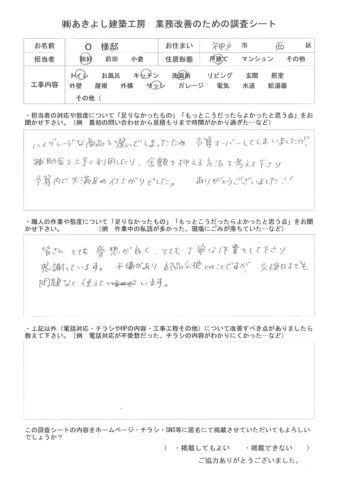 ㈱あきよし建築工房　業務改善のための調査シート
お名前　O 様邸　お住まい　神戸 市　西 区
担当者　秋好　前田　小倉　住居形態　戸建て　マンション　その他
工事内容　トイレ　お風呂　キッチン　洗面所　リビング　玄関　居室
外壁　屋根　外構　サッシ　ガレージ　電気　水道　給湯器
その他（
・担当者の対応や態度について「足りなかったもの」「もっとこうだったらよかったと思う点」をお
聞かせ下さい。（例　最初の問い合わせから見積もりまで時間がかかり過ぎた…など）
ハイグレードな商品を選んでしまったため 予算オーバーしてしまいましたが、
補助金を上手に利用したり、金額を抑える方法を考えて下さり
予算内で大満足の仕上がりでした。 ありがとうございました!!
・職人の作業や態度について「足りなかったもの」「もっとこうだったらよかったと思う点」をお聞
かせ下さい。　（例　作業中の私語が多かった、現場にごみが落ちていた…など）
皆さん とても 愛想が良く、とても丁寧な作業をして下さり
感謝しています。 不備があり 部品交換とのことですが 交換日までも
問題なく 使えています。
・上記以外（電話対応・チラシやHPの内容・工事工程その他）について改善すべき点がありましたら
教えて下さい。（例　電話対応が不愛想だった、チラシの内容がわかりにくかった…など）
この調査シートの内容をホームページ・チラシ・SNS等に匿名にて掲載させていただいてもよろしい
でしょうか？
（　・掲載してもよい　・掲載できない　）
ご協力ありがとうございました。